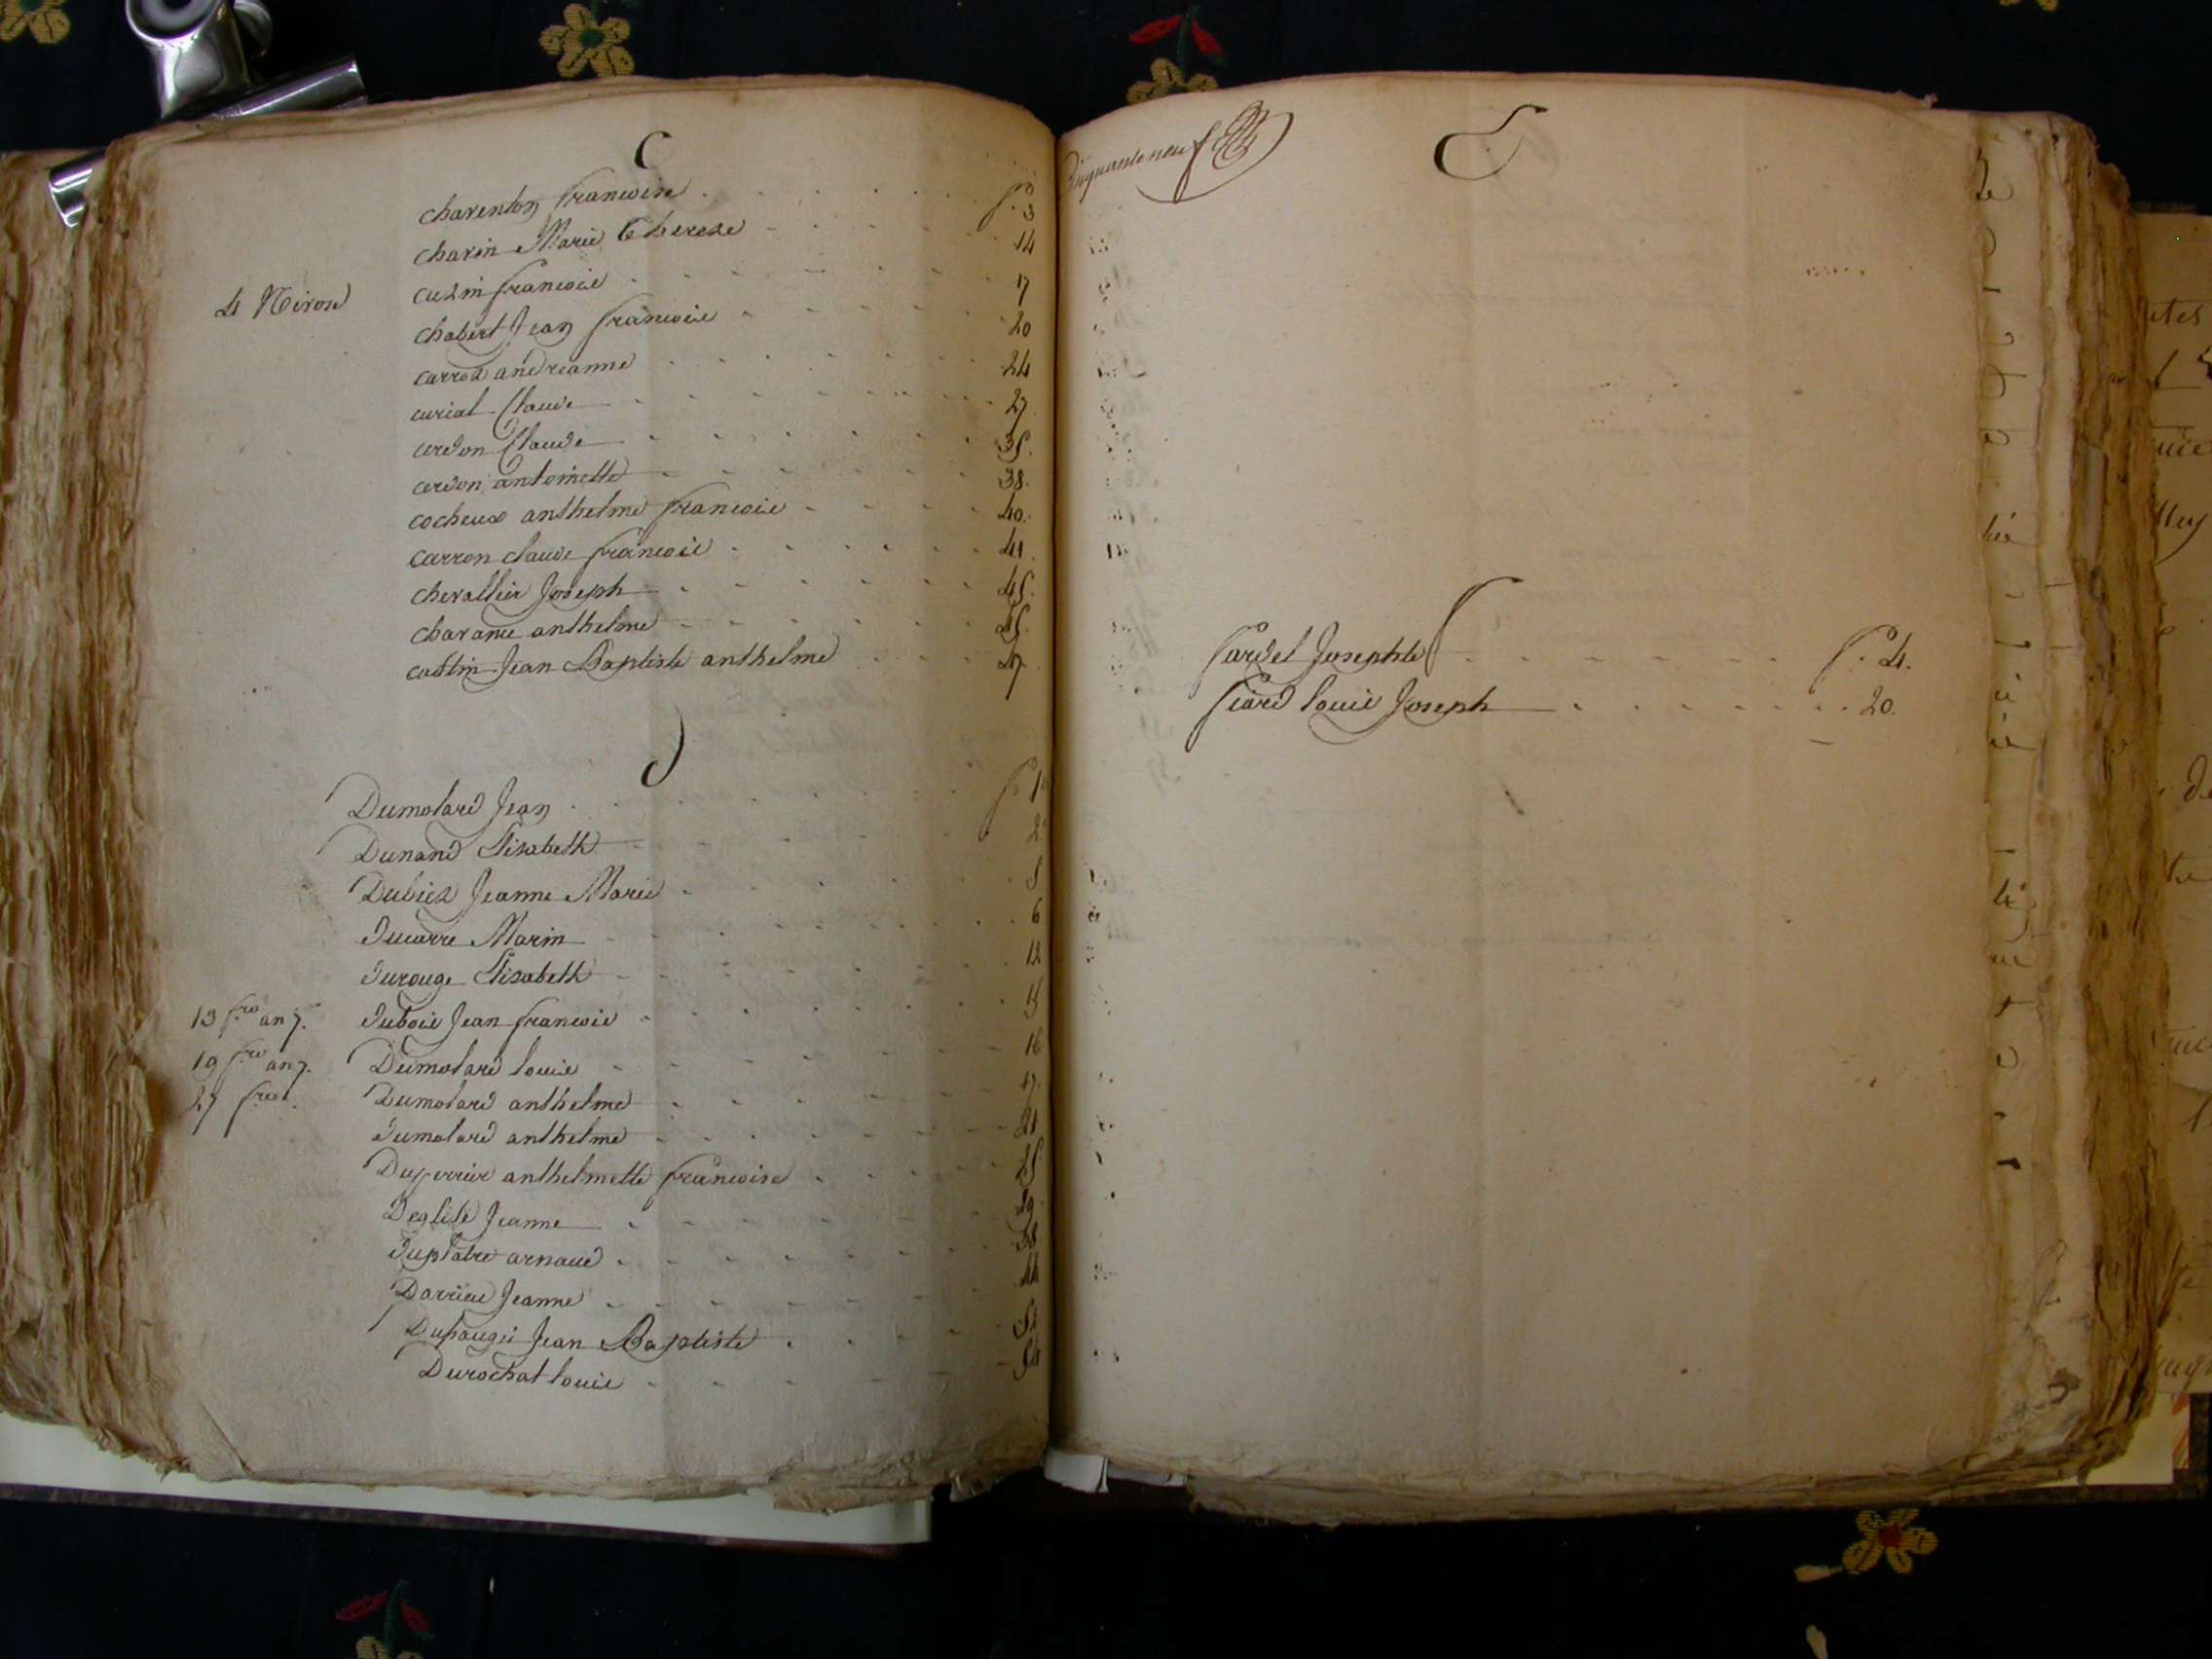 C
charenton francoise fo 3
charin Marie Therese 14
4 Nivose cuzin francois 17
chabert Jean francois 20
carroz andreanne 24
curial Claude 27
cerdon Claude 35.
cerdon antoinette 38.
cocheux anthelme francois 40.
carron claude francois 41.
chevallier Joseph 45.
charanie anthelme 45.
costin Jean Baptiste anthelme 47
D
Dumolard Jean fo 1
Dunand Elisabeth 2
Jeanne Marie 5
ducarre Marin 6
durouge Elisabeth 12
13 fre an 7. dubois Jean francois 15
19 fre an 7. Dumolard louis 16
27 fre Dumolard anthelme 17.
dumolard anthelme 21
Duperrier anthelmette francoise 25
Deglise Jeanne 29.
duplatre arnaud 38
Darrieu Jeanne 44
Jean Baptiste
Durochat louis 54
Cinquante neuf
E
f
fardel Josephte f. 4.
fiard louis Joseph 20.